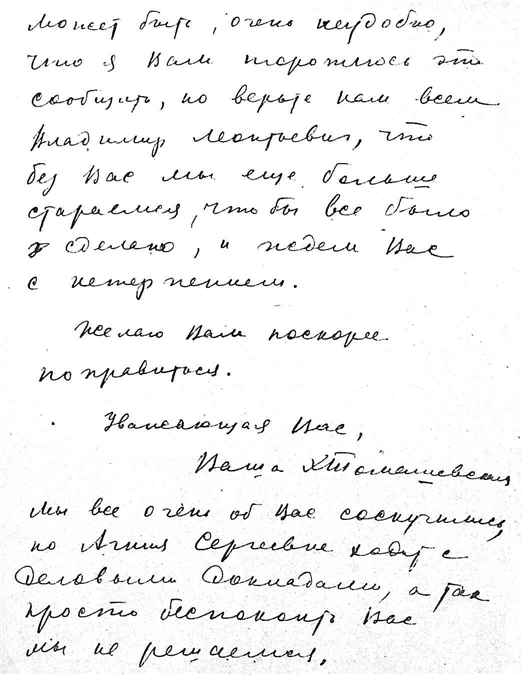 может быть, очень неудобно,
что я Вам тороплюсь это
сообщить, но верьте нам всем
Владимир Леонтьевич, что
без Вас мы еще больше
стараемся, что бы все было
сделано, и ждем Вас
с нетерпением.
Желаю Вам поскорее
поправиться.
Уважающая Вас,
Ваша Томашевская
Мы все очень об Вас соскучились,
но Агния Сергеевна ходит с
Деловыми Докладами, а так
просто беспокоить Вас
мы не решаемся.